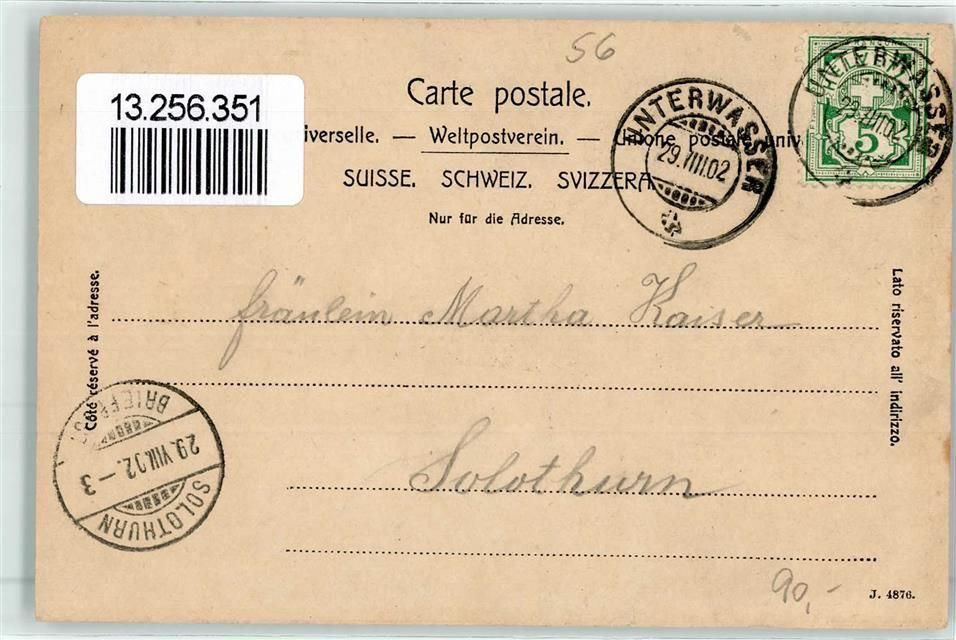 56
13.256.351
Carte postale.
iverselle. — Weltpostverein. — Unione postale univ
SUISSE. SCHWEIZ. SVIZZERA.
Nur für die Adresse.
UNTERWASSER
29.VIII.02
UNTERWASSER
29.VIII.02
5
Côté réservé à l'adresse.
Lato riservato all' indirizzo.
Fräulein Martha Kaiser
Solothurn
SOLOTHURN
29.VIII.02.-3
BRIEFPOST
90,-
J. 4876.